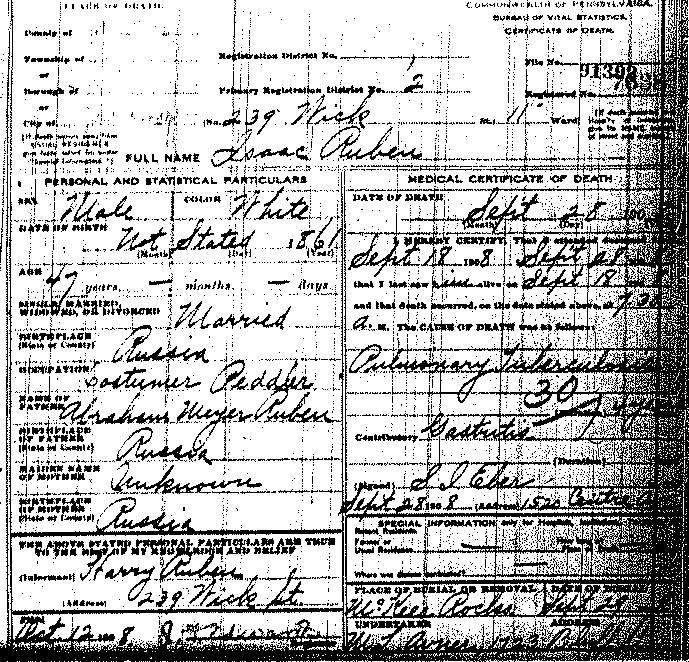 PLACE OF DEATH.
COMMONWEALTH OF PENNSYLVANIA.
BUREAU OF VITAL STATISTICS.
CERTIFICATE OF DEATH.
County of
Township of
or
Borough of
or
City of
Registration District No.
Primary Registration District No. 2
File No.
Registered No.
(No. 239 Wick St., 11 Ward)
FULL NAME Isaac Ruben
PERSONAL AND STATISTICAL PARTICULARS
SEX Male COLOR White
DATE OF BIRTH Not Stated 1861
(Month) (Day) (Year)
AGE 47 years, — months, — days
SINGLE, MARRIED, WIDOWED, OR DIVORCED Married
BIRTHPLACE (State or County) Russia
OCCUPATION Costumer Peddler
NAME OF FATHER Abraham Meyer Ruben
BIRTHPLACE OF FATHER (State or County) Russia
MAIDEN NAME OF MOTHER Unknown
BIRTHPLACE OF MOTHER (State or County) Russia
THE ABOVE STATED PERSONAL PARTICULARS ARE TRUE
TO THE BEST OF MY KNOWLEDGE AND BELIEF
(Informant) Harry Ruben
(Address) 239 Wick St.
Oct 12 1908
MEDICAL CERTIFICATE OF DEATH
DATE OF DEATH
Sept 28
(Month) (Day)
I HEREBY CERTIFY, That I attended deceased
Sept 18 1908 Sept 28
that I last saw him alive on Sept 18
and that death occurred, on the date stated above, at 7.30
a. M. The CAUSE OF DEATH was as follows:
Pulmonary Tuberculosis
30
Contributory Gastritis
(Duration)
(Signed) S. I. Eber
Sept 28 1908 (Address) 1520 Centre
SPECIAL INFORMATION only for Hospitals, Institutions
Former or Usual Residence —
Where was disease contracted
PLACE OF BURIAL OR REMOVAL DATE OF BURIAL
McKees Rocks Sept 28
UNDERTAKER ADDRESS